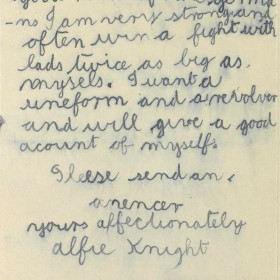 -ns I am very strong and
often win a fight with
lads twice as big as
myself. I want a
uneform and a revolver
and will give a good
acount of myself.
Pleese send an
anencer
yours affectionately
alfie Knight